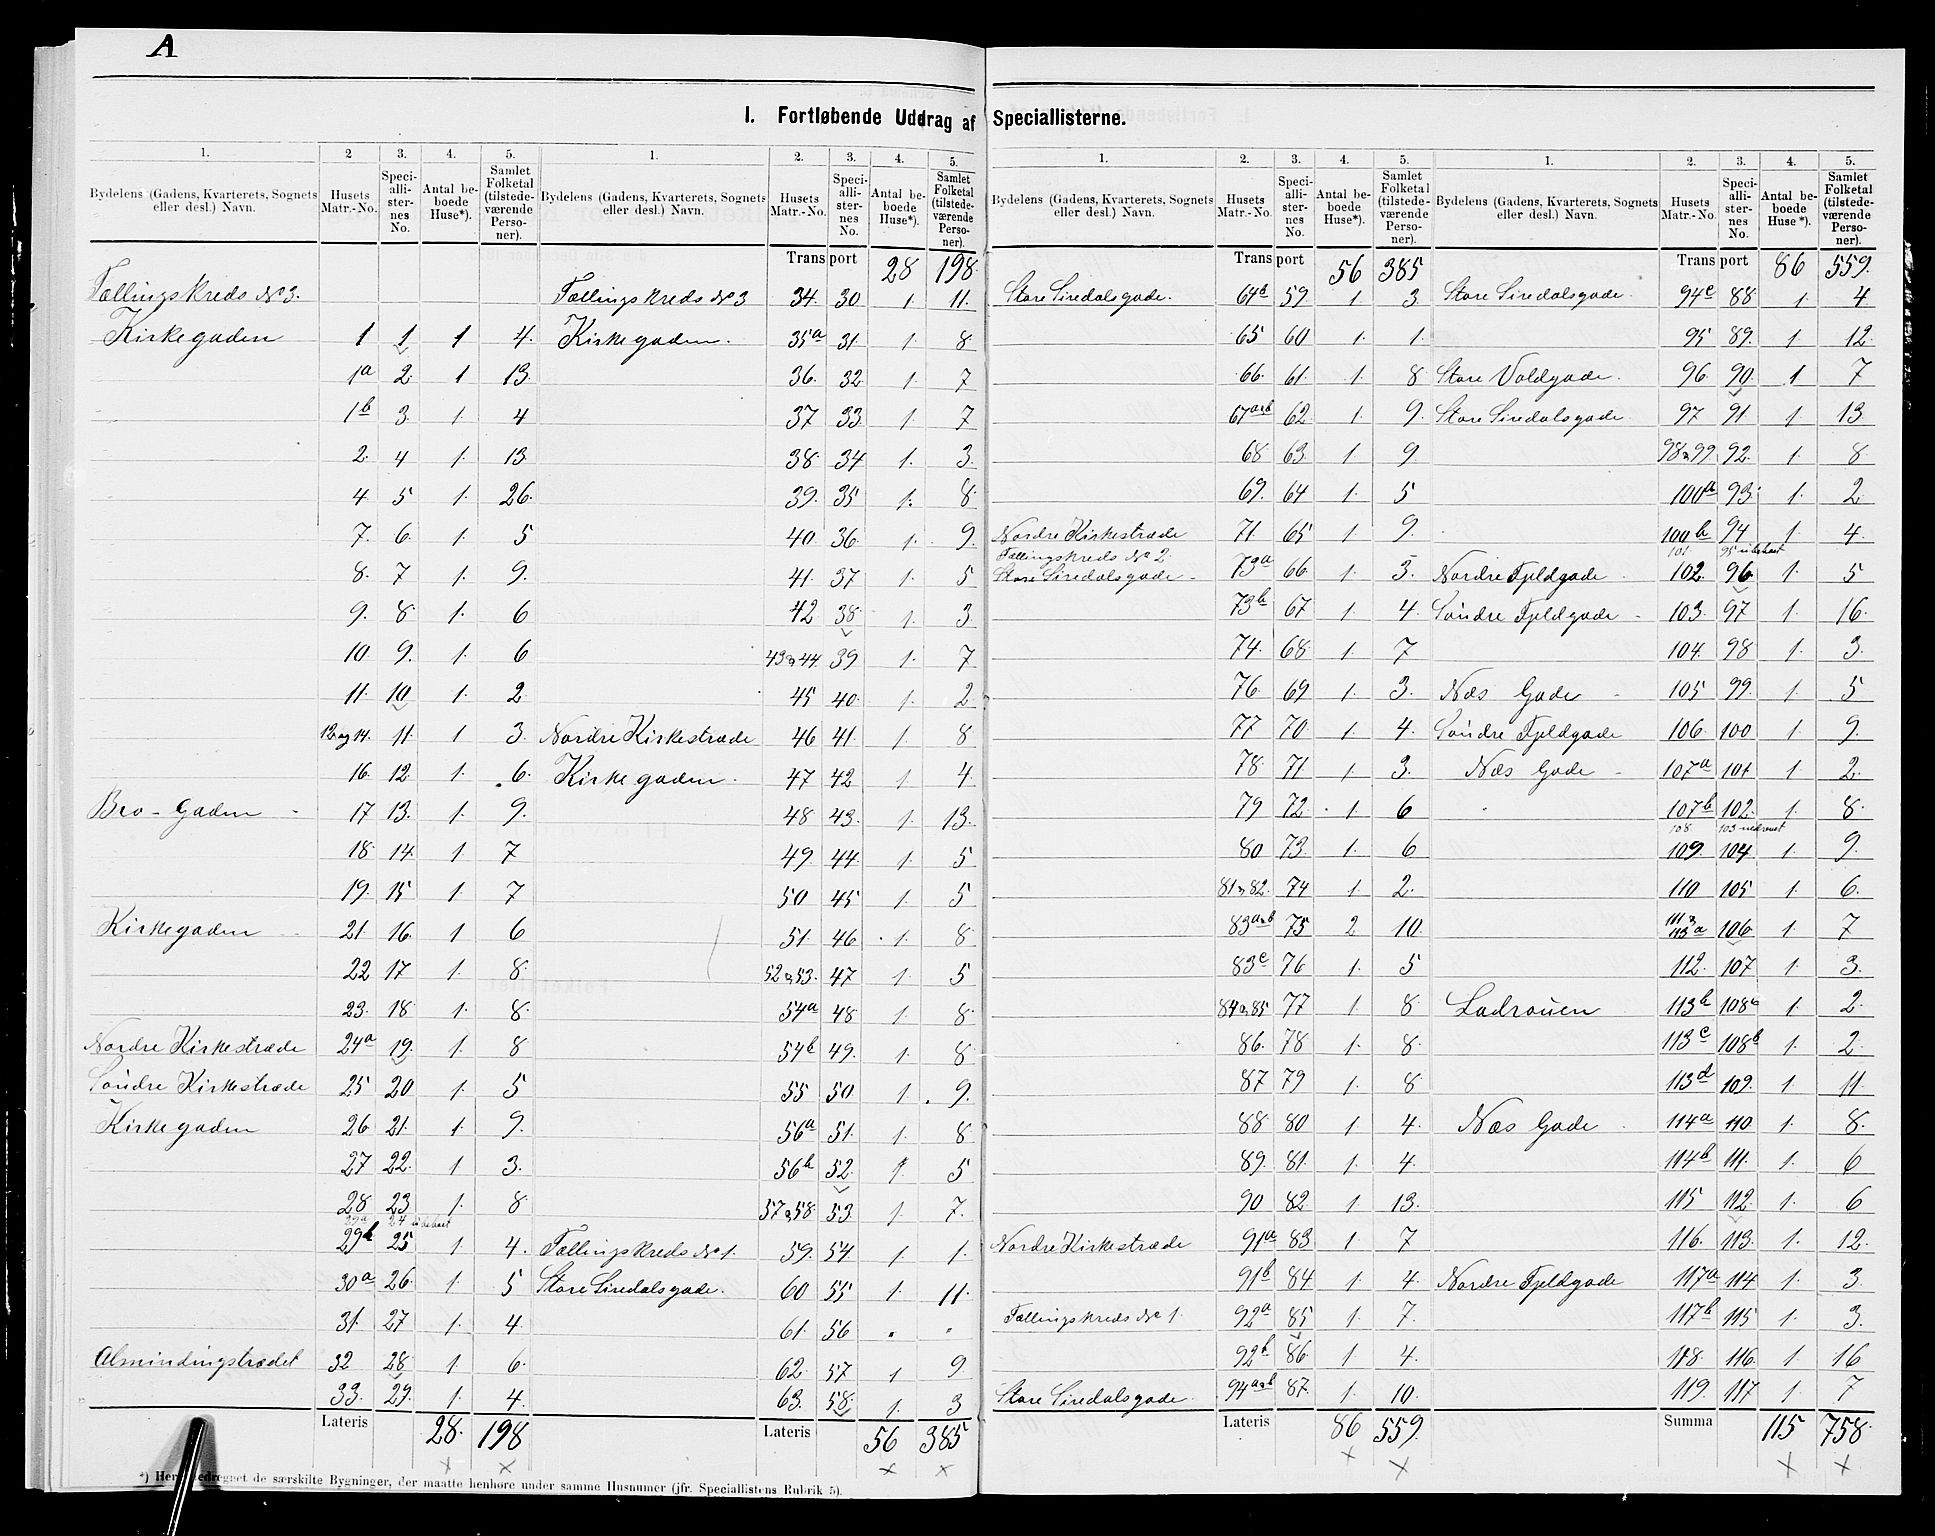 A
I. Fortløbende Uddrag af Speciallisterne.
1. 2 3. 4. 5. 1. 2. 3. 4. 5. 1. 2. 3. 4. 5. 1. 2. 3. 4. 5.
Bydelens (Gadens, Kvarterets, Sognets eller desl.) Navn. Husets Matr.-No. Specialli-sternes No. Antal beboede Huse*). Samlet Folketal (tilstedeværende Personer).
Bydelens (Gadens, Kvarterets, Sognets eller desl.) Navn. Husets Matr.-No. Speciallisternes No. Antal beboede Huse*). Samlet Folketal (tilstedeværende Personer).
Bydelens (Gadens, Kvarterets, Sognets eller desl.) Navn. Husets Matr.-No. Speciallisternes No. Antal beboede Huse*). Samlet Folketal (tilstedeværende Personer).
Bydelens (Gadens, Kvarterets, Sognets eller desl.) Navn. Husets Matr.-No. Speciallisternes No. Antal beboede Huse*). Samlet Folketal (tilstedeværende Personer).
Tællingskreds No 3.
Kirkegaden 1 1 1 4.
1a 2. 1 13.
1b 3. 1. 4
2. 4 1. 13
4. 5 1. 26.
7. 6. 1. 5
8. 7 1. 9.
9. 8 1. 6
10. 9. 1. 6
11. 10 1. 2
12 og 14. 11. 1 3.
16. 12. 1. 6.
Bro-Gaden 17 13. 1. 9.
18. 14. 1. 7
19. 15 1. 7
Kirkegaden 21. 16. 1 6
22 17 1. 8.
23. 18 1. 8.
Nordre Kirkestræde 24a 19. 1. 8
Söndre Kirkestræde 25 20 1. 5
Kirkegaden 26 21. 1. 9.
27 22. 1 3.
28 23 1. 8
29a 24 ubeboet
29b 25 1 4.
30a 26. 1. 5
31. 27 1. 4.
Almindingstrædet 32 28 1 6.
33. 29. 1. 4.
Lateris 28. 198
Transport 28 198.
Tællingskreds No 3 34. 30 1. 11.
Kirkegaden. 35a 31 1. 8
36. 32 1. 7
37 33 1. 7
38. 34 1. 3.
39. 35 1. 8
40. 36. 1. 9.
41. 37 1. 5
42 38 1. 3.
43 & 44. 39 1. 7
45 40 1. 2
Nordre Kirkestræde 46 41. 1 8
Kirkegaden. 47 42 1 4.
48 43. 1. 13.
49 44 1. 5
50 45 1. 5
51. 46 1. 8
52 & 53. 47 1 5
54a 48 1. 8
54b 49. 1. 8
55 50. 1. 9.
56a 51. 1. 8
56b 52. 1. 5
57 & 58. 53. 1. 7.
Tællingskreds No 1. 59. 54. 1 1.
Store Siredalsgade. 60 55 1. 11.
61. 56 " "
62. 57 1 9
63. 58. 1. 3
Lateris 56 385
Transport 56 385
Store Siredalsgade. 64b 59. 1. 3.
65 60 1. 1.
66. 61. 1. 8
67a&b 62. 1. 9.
68 63. 1 9
69. 64 1. 5
Nordre Kirkestræde 71. 65 1 9.
Tællingskreds No 2.
Store Siredalsgade 73a 66. 1. 3.
73b 67 1. 4.
74. 68 1. 7
76. 69 1. 3.
77 70. 1 4.
78. 71 1 3.
79 72. 1 6
80 73. 1. 6
81 & 82. 74 1. 2.
83a&b 75 2 10.
83c 76 1. 5
84 & 85 77 1. 8
86. 78 1. 8.
87 79 1. 8
88 80 1. 4.
89. 81. 1. 4.
90 82 1. 13.
Nordre Kirkestræde 91a 83. 1. 7
91b 84 1. 4.
Tællingskreds No 1. 92a 85 1. 7.
92b 86 1 4.
Store Siredalsgade. 94a&b 87. 1. 10.
Lateris 86 559.
Transport 86 559.
Store Siredalsgade. 94c 88 1. 4
95 89. 1. 12
Store Voldgade. 96. 90. 1 7
Store Siredalsgade. 97 91. 1 13
98 & 99. 92. 1. 8
100a 93. 1. 2
100b 94 1. 4.
101. 95 ubeboet
Nordre Fjeldgade 102. 96. 1. 5
Söndre Fjeldgade 103. 97 1. 16.
104. 98 1. 3.
Næs Gade 105 99. 1. 5
Söndre Fjeldgade 106. 100 1. 9.
Næs Gade 107a 101 1 2.
107b 102. 1. 8.
108. 103
109. 104 1. 9.
110 105 1. 6.
111 & 113a 106. 1. 7
112. 107 1. 3.
Ladrouen 113b 108a 1. 2
113c 108b 1. 2.
113d 109. 1. 11.
Næs Gade 114a 110 1. 8.
114b 111. 1. 6
115 112. 1. 6
116. 113. 1. 12.
Nordre Fjeldgade 117a 114 1. 3
117b 115 1. 3.
118. 116. 1 16
119. 117 1. 7
Summa 115 758.
*) Her medregnet de særskilte Bygninger, der maatte henhøre under samme Husnumer (jfr. Speciallistens Rubrik 5).